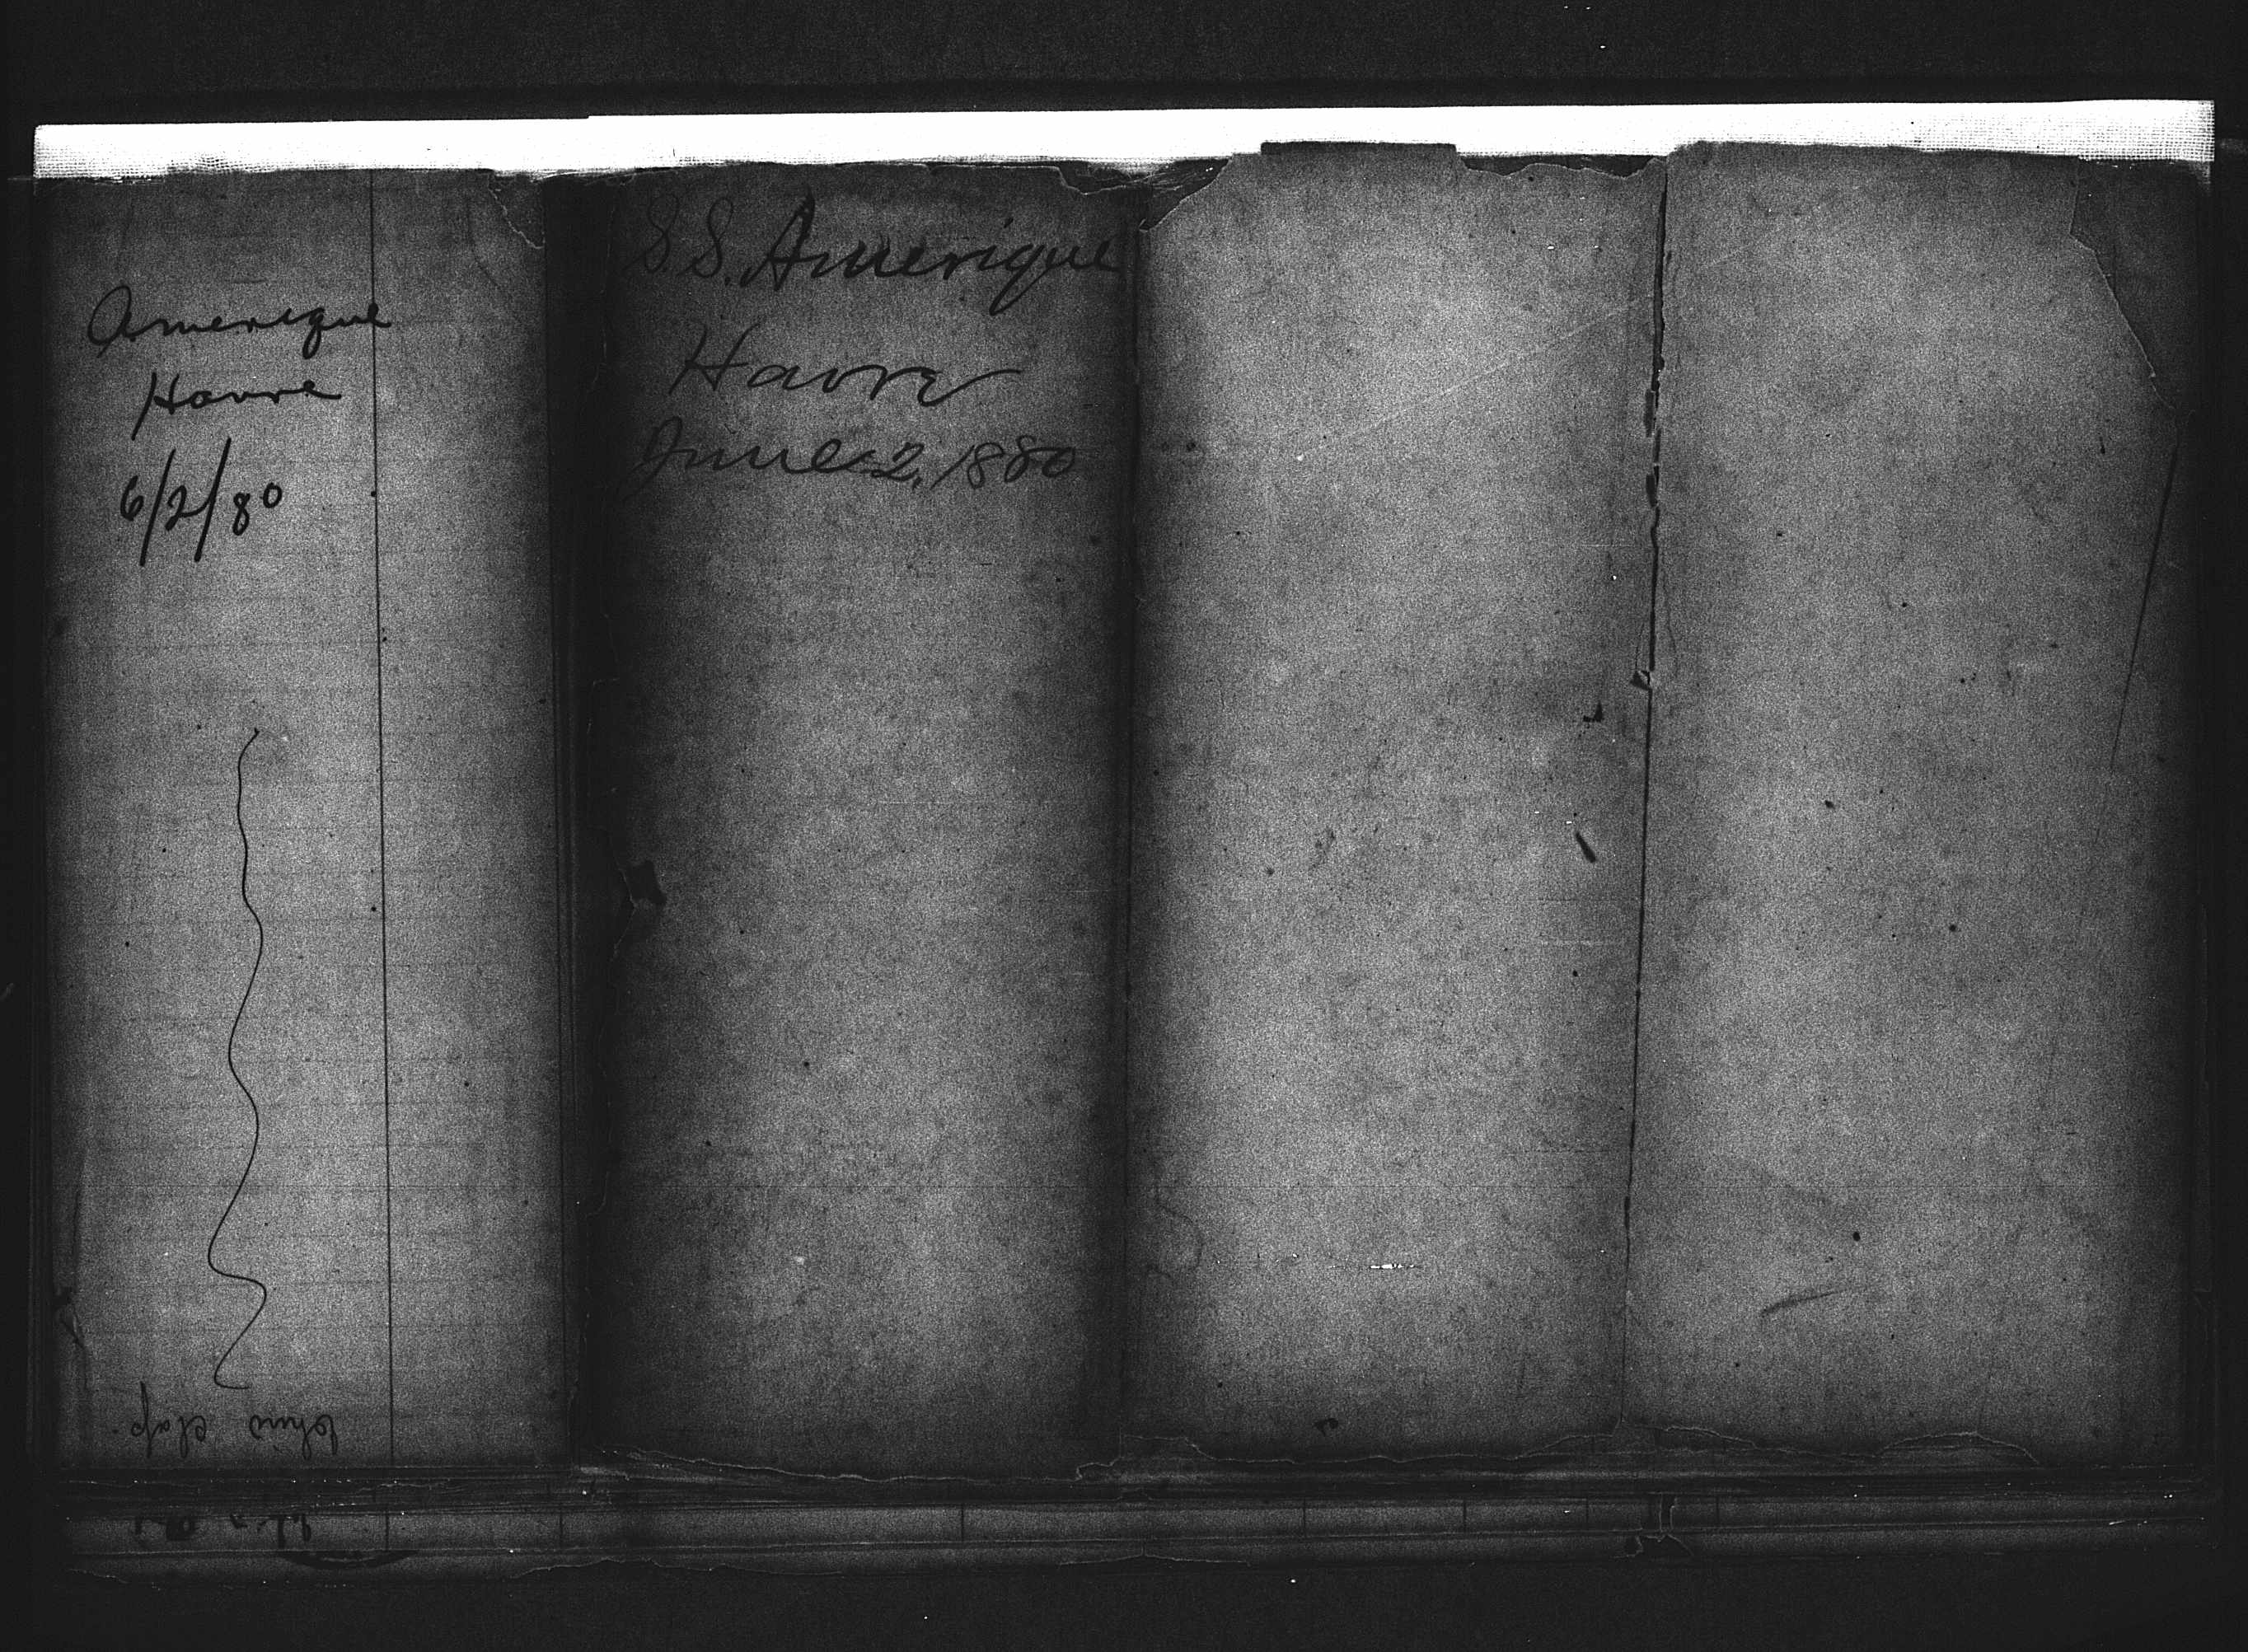 Amerique
Havre
6/2/80
S.S. Amerique
Havre
June 2, 1880